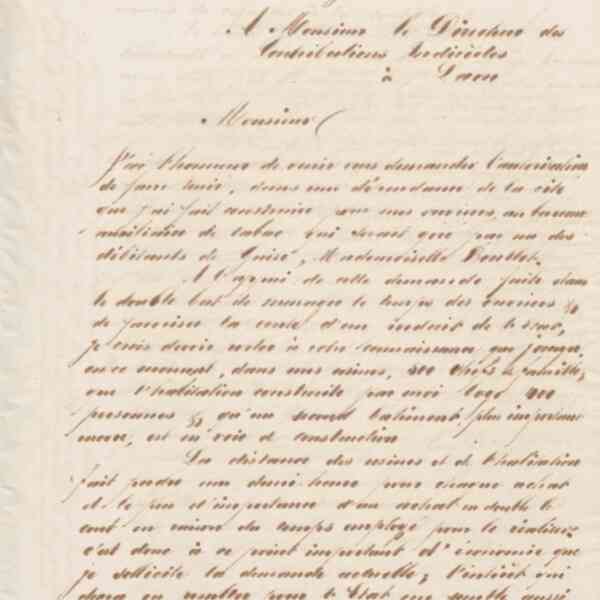 A Monsieur le Directeur des
Contributions Indirectes
à Laon
Monsieur
J'ai l'honneur de venir vous demander l'autorisation
de faire tenir, dans une dépendance de la cité
que j'ai fait construire pour mes ouvriers, un bureau
auxiliaire de tabac qui serait géré par un des
débitants de Guise, Mademoiselle
A l'appui de cette demande faite dans
le double but de ménager le temps des ouvriers &
de favoriser la vente d'un produit de l'Etat,
je crois devoir porter à votre connaissance que j'occupe,
en ce moment, dans mes usines, chefs de famille,
que l'habitation construite par moi loge 900
personnes & qu'un second bâtiment plus important
encore, est en voie de construction
La distance des usines et de l'habitation
fait perdre une demi heure pour chaque achat
et le peu d'importance d'un achat en double le
coût en raison du temps employé pour le réaliser
c'est donc à ce point important d'économie que
je sollicite la demande actuelle; l'intérêt qui
devra en résulter pour l'Etat me semble aussi